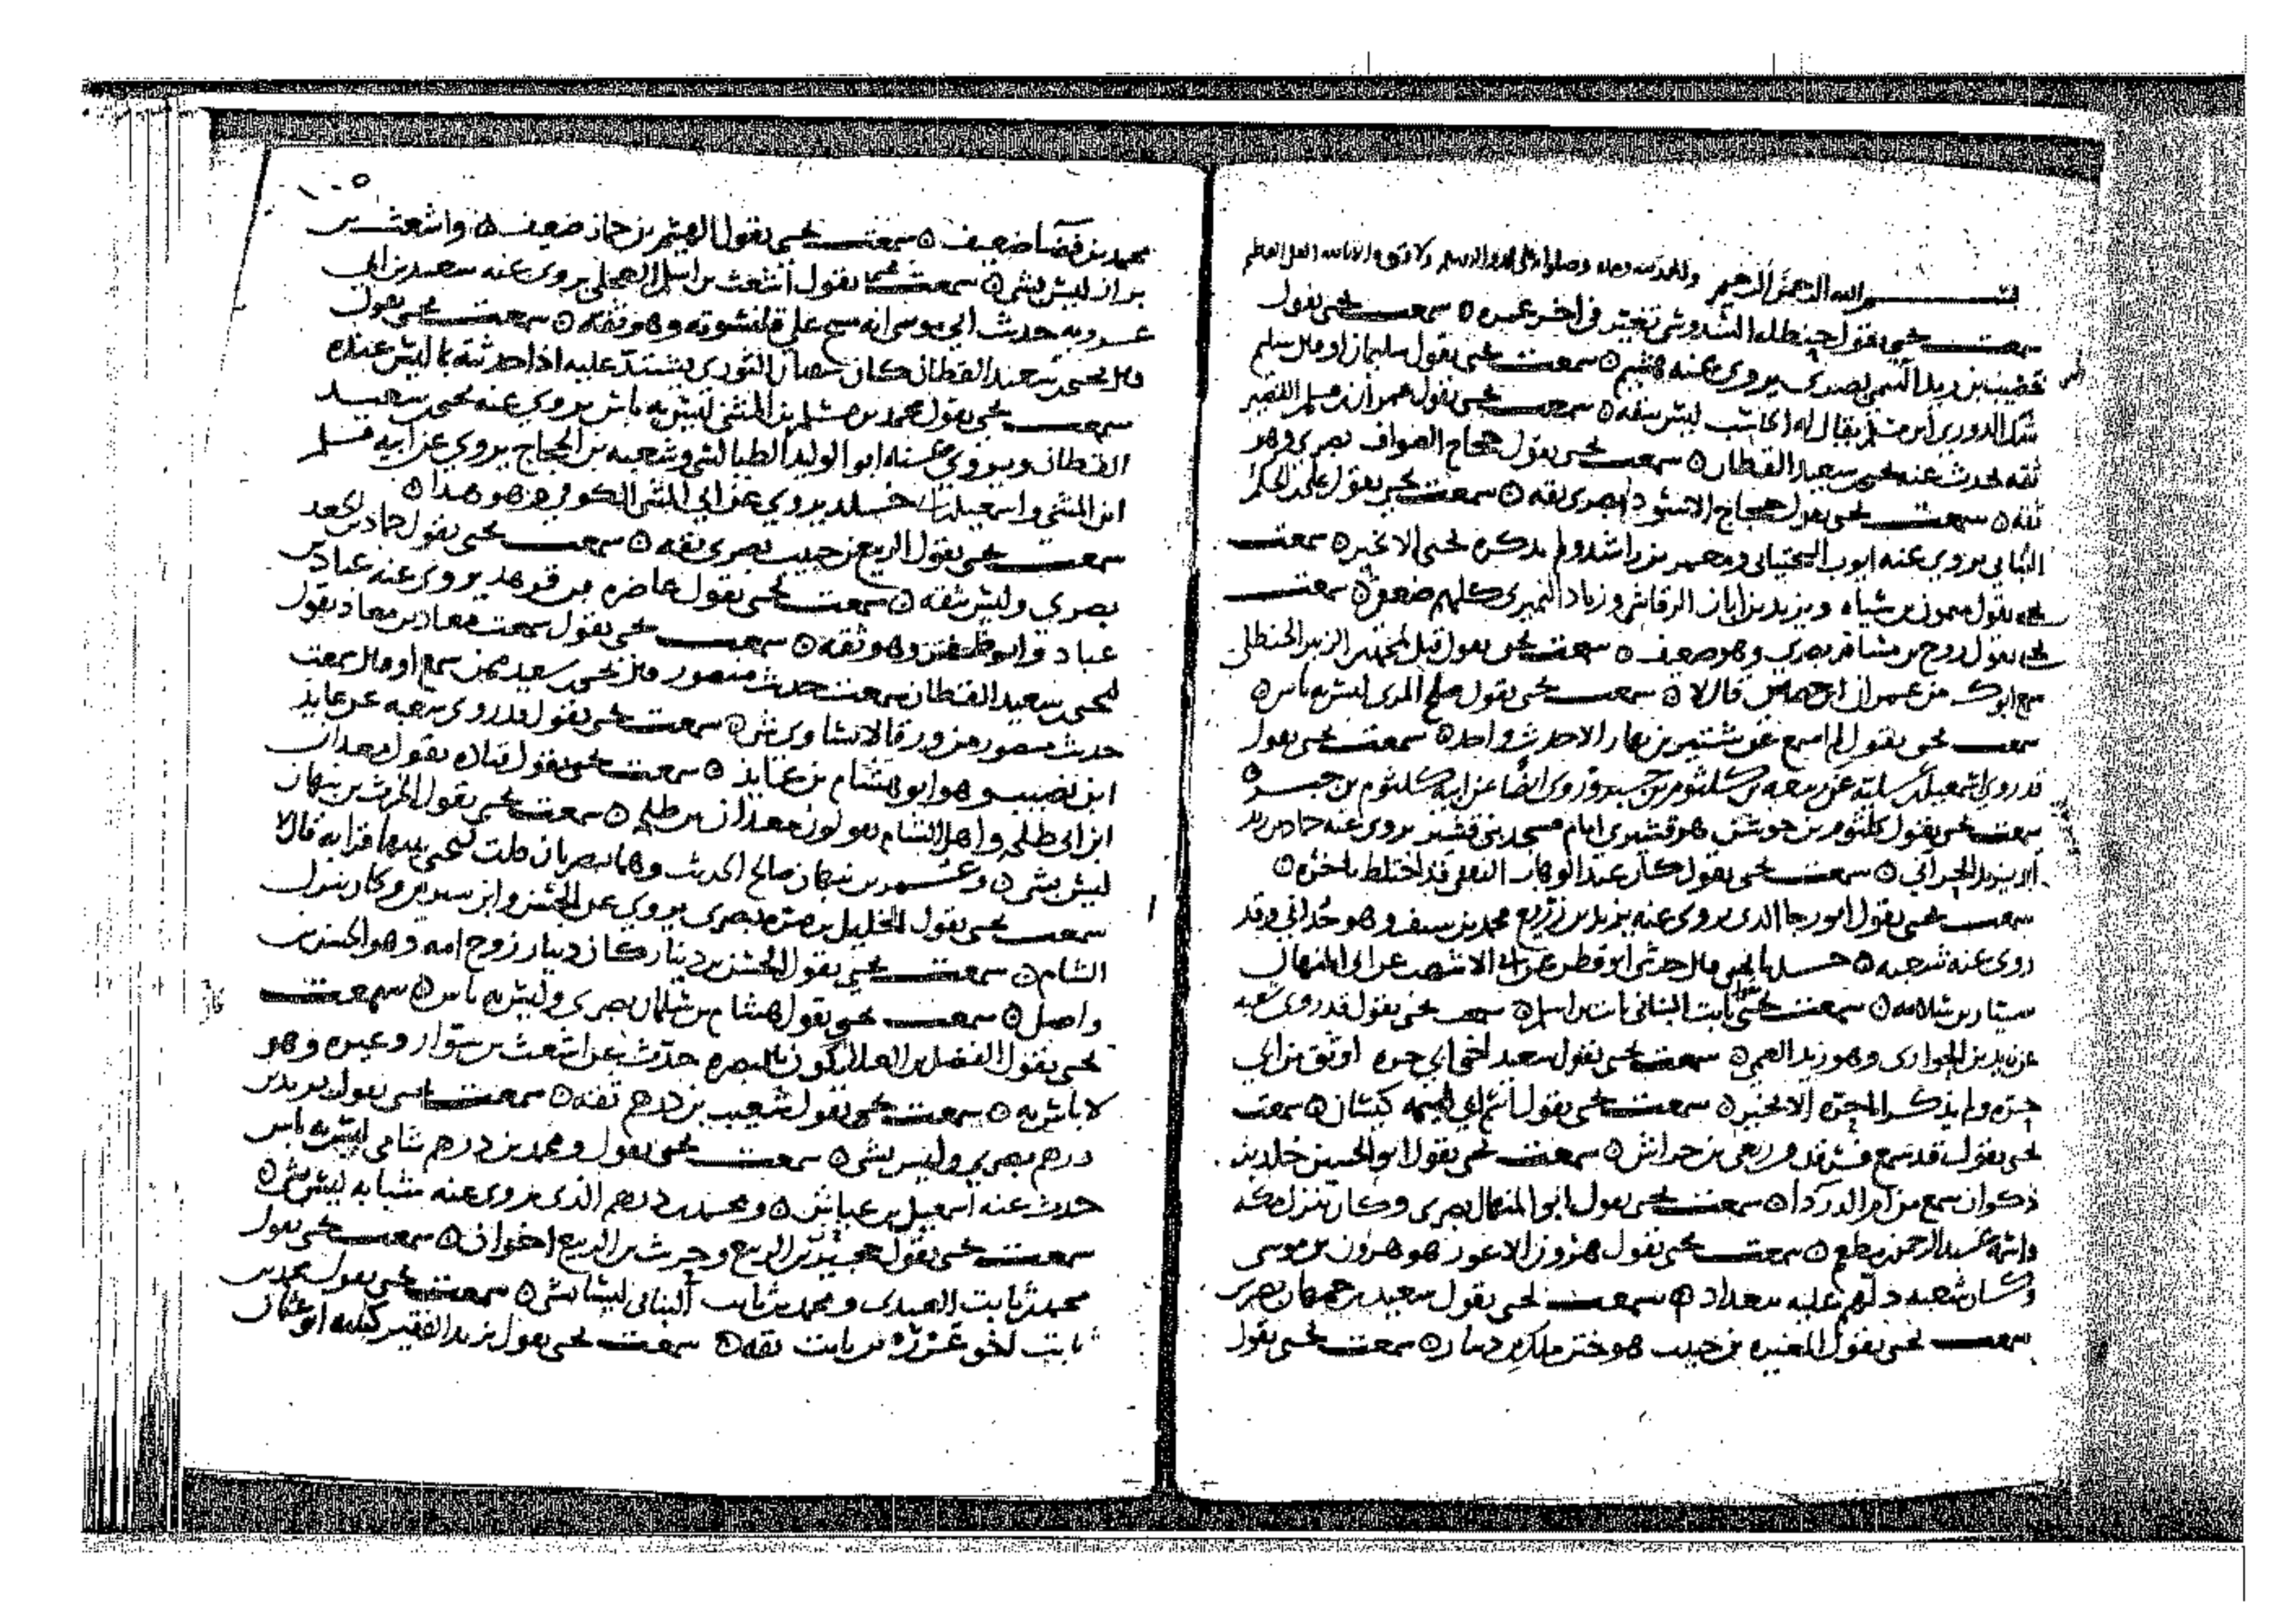 بسم الله الرحمن الرحيم والحمد لله وحده وصلواته على محمد واله وسلم ولا قوة الا بالله العلي العظيم
سمعت يحيى يقول حنظلة السدوسي تغير في اخر عمره ○ سمعت يحيى يقول
بن زيد التيمي بصري يروي عنه هشيم ○ سمعت يحيى يقول سليمان او قال سليم
شك الدوري ابن مسلم يقال له ليس بثقه ○ سمعت يحيى يقول عمران بن مسلم القصير
ثقه يحدث عنه يحيى بن سعيد القطان ○ سمعت يحيى يقول حجاج الصواف بصري وهو
ثقه ○ سمعت يحيى يقول حجاج الاسود بصري ثقه ○ سمعت يحيى يقول علي بن الحكم
البناني يروي عنه ايوب السختياني ومعمر بن راشد ولم يذكره يحيى الا بخير ○ سمعت
يحيى يقول ميمون بن سياه ويزيد بن ابان الرقاشي وزياد النميري كلهم ضعفى ○ سمعت
يحيى يقول روح بن مسافر بصري وهو ضعيف ○ سمعت يحيى يقول قيل لمحمد بن الزبير الحنظلي
سمع ابوك من عمران بن حصين قال لا ○ سمعت يحيى يقول صالح المري ليس به باس ○
سمعت يحيى يقول لم اسمع عن شتير بن نهار الا حديث واحد ○ سمعت يحيى يقول
قد روى اسمعيل بن علية عن ربيعه بن كلثوم بن جبر وروى ايضا عن ابيه كلثوم بن جبر ○
سمعت يحيى يقول كلثوم بن جوشن هو قشيري امام مسجد بني قشير يروي عنه حماد بن زيد
سمعت يحيى يقول كان عبد الوهاب الثقفي قد اختلط باخره ○
سمعت يحيى يقول ابو رجا الذي يروي عنه يزيد بن زريع محمد بن سيف وهو حداني وقد
روى عنه شعبه ○ حدثنا يحيى قال حدثني ابو قطن عن ابي الاشهب عن ابي المنهال
سيار بن سلامه ○ سمعت يحيى يقول ثابت البناني ثابت بن اسلم ○ سمعت يحيى يقول قد روى شعبه
عن زيد بن الحواري وهو زيد العمي ○ سمعت يحيى يقول سعيد اخي ابي حره اوثق من ابي
حره ولم يذكر ابا حره الا بخير ○ سمعت يحيى يقول اسم ابي كيسان ○ سمعت
يحيى يقول قد سمع من ربعي بن حراش ○ سمعت يحيى يقول ابو الحسين خلد بن
ذكوان سمع من ام الدردا ○ سمعت يحيى يقول ابو المنهال بصري وكان ينزل مكه
واسمه عبد الرحمن بن مطعم ○ سمعت يحيى يقول هرون الاعور هو هرون بن موسى
وكان شعبه دلهم عليه ببغداد ○ سمعت يحيى يقول سعيد بن جمهان بصري
سمعت يحيى يقول المغيره بن حبيب هو ختن ملك بن دينار ○ سمعت يحيى يقول
١٠٥
محمد بن فضا ضعيف ○ سمعت يحيى يقول الهيثم بن جماز ضعيف ○ واشعث بن
براز ليس بشي ○ سمعت يحيى يقول اشعث بن اسلم العجلي يروي عنه سعيد بن ابي
عروبه حديث ابي موسى انه مسح على قلنسوته وهو ثقه ○ سمعت يحيى يقول
قال يحيى بن سعيد القطان كان سفيان الثوري يشتد عليه اذا حدثته بما ليس عنده
سمعت يحيى يقول محمد بن مسلم بن المثنى ليس به باس يروي عنه يحيى بن سعيد
القطان ويروي عنه ابو الوليد الطيالسي وشعبه بن الحجاج يروي عن ابيه مسلم
ابن المثنى واسمعيل بن ابي خالد يروي عن ابي المثنى الكوفي وهو هذا ○
سمعت يحيى يقول الربيع بن حبيب بصري ثقه ○ سمعت يحيى يقول حماد بن الجعد
بصري وليس بثقه ○ سمعت يحيى يقول حاضر بن يروي عنه عباد بن
عباد وابو وهو ثقه ○ سمعت يحيى يقول سمعت معاذ بن معاذ يقول
ليحيى بن سعيد القطان سمعت حديث منصور قال يحيى بن سعيد ممن سمع او قال سمعت
حديث منصور من ورقا لا تساوي شي ○ سمعت يحيى يقول قد روى شعبه عن عايذ
ابن نصيب وهو ابو هشام بن عايذ ○ سمعت يحيى يقول قتاده يقول معدان
ابن ابي طلحه واهل الشام يقولون معدان بن طلحه ○ سمعت يحيى يقول الحرث بن نبهان
ليس بشي ○ وعثمن بن نبهان صالح الحديث وهما بصريان قلت ليحيى بينهما قرابه قال لا
سمعت يحيى يقول الخليل بن مره بصري يروي عن الحسن وابن سيرين وكان ينزل
الشام ○ سمعت يحيى يقول الحسن بن دينار كان دينار زوج امه وهو الحسن بن
واصل ○ سمعت يحيى يقول هشام بن سلمان بصري وليس به باس ○ سمعت
يحيى يقول الفضل بن العلا يكون بالبصره حدث عن اشعث بن سوار وغيره وهو
لا باس به ○ سمعت يحيى يقول شعيب بن درهم ثقه ○ سمعت يحيى يقول يزيد بن
درهم بصري وليس بشي ○ سمعت يحيى يقول ومحمد بن درهم شامي ليس به باس
حدث عنه اسمعيل بن عياش ○ ومحمد بن درهم الذي يروي عنه شبابه ليس بشي ○
سمعت يحيى يقول بن الربيع وحريث بن الربيع اخوان ○ سمعت يحيى يقول
محمد بن ثابت العبدي ومحمد بن ثابت البناني ليسا بشي ○ سمعت يحيى يقول محمد بن
ثابت اخو عزره بن ثابت ثقه ○ سمعت يحيى يقول يزيد الفقير كنيته ابو عثمان